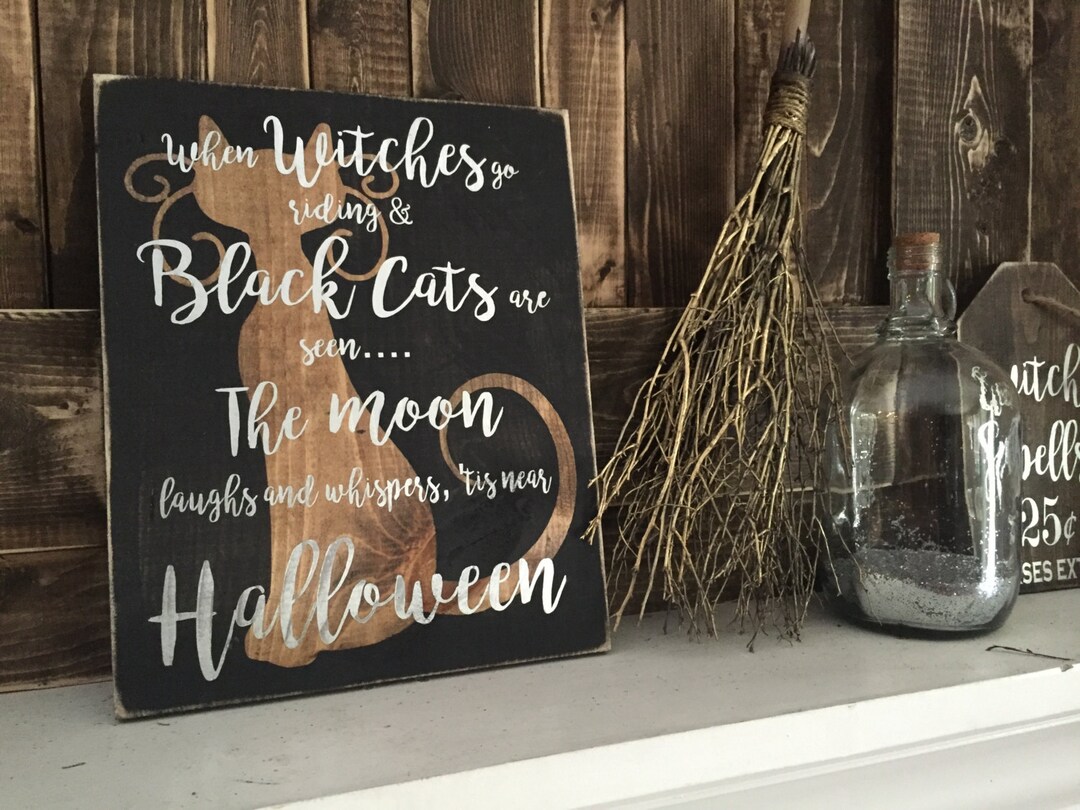 When Witches go
riding &
Black Cats are
seen....
The moon
laughs and whispers, 'tis near
Halloween
25¢